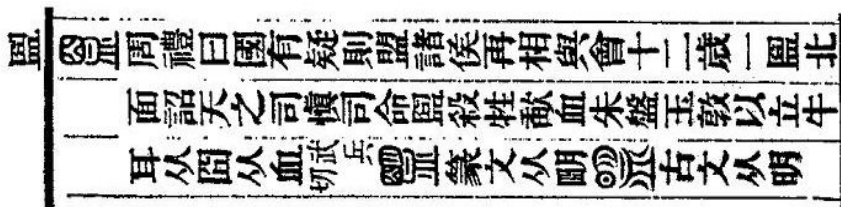 𥁰
周禮曰國有疑則盟諸侯再相與會十二歲一𥁰北
面詔天之司慎司命𥁰殺牲歃血朱盤玉敦以立牛
耳从囧从血武兵切 篆文从朙 古文从明